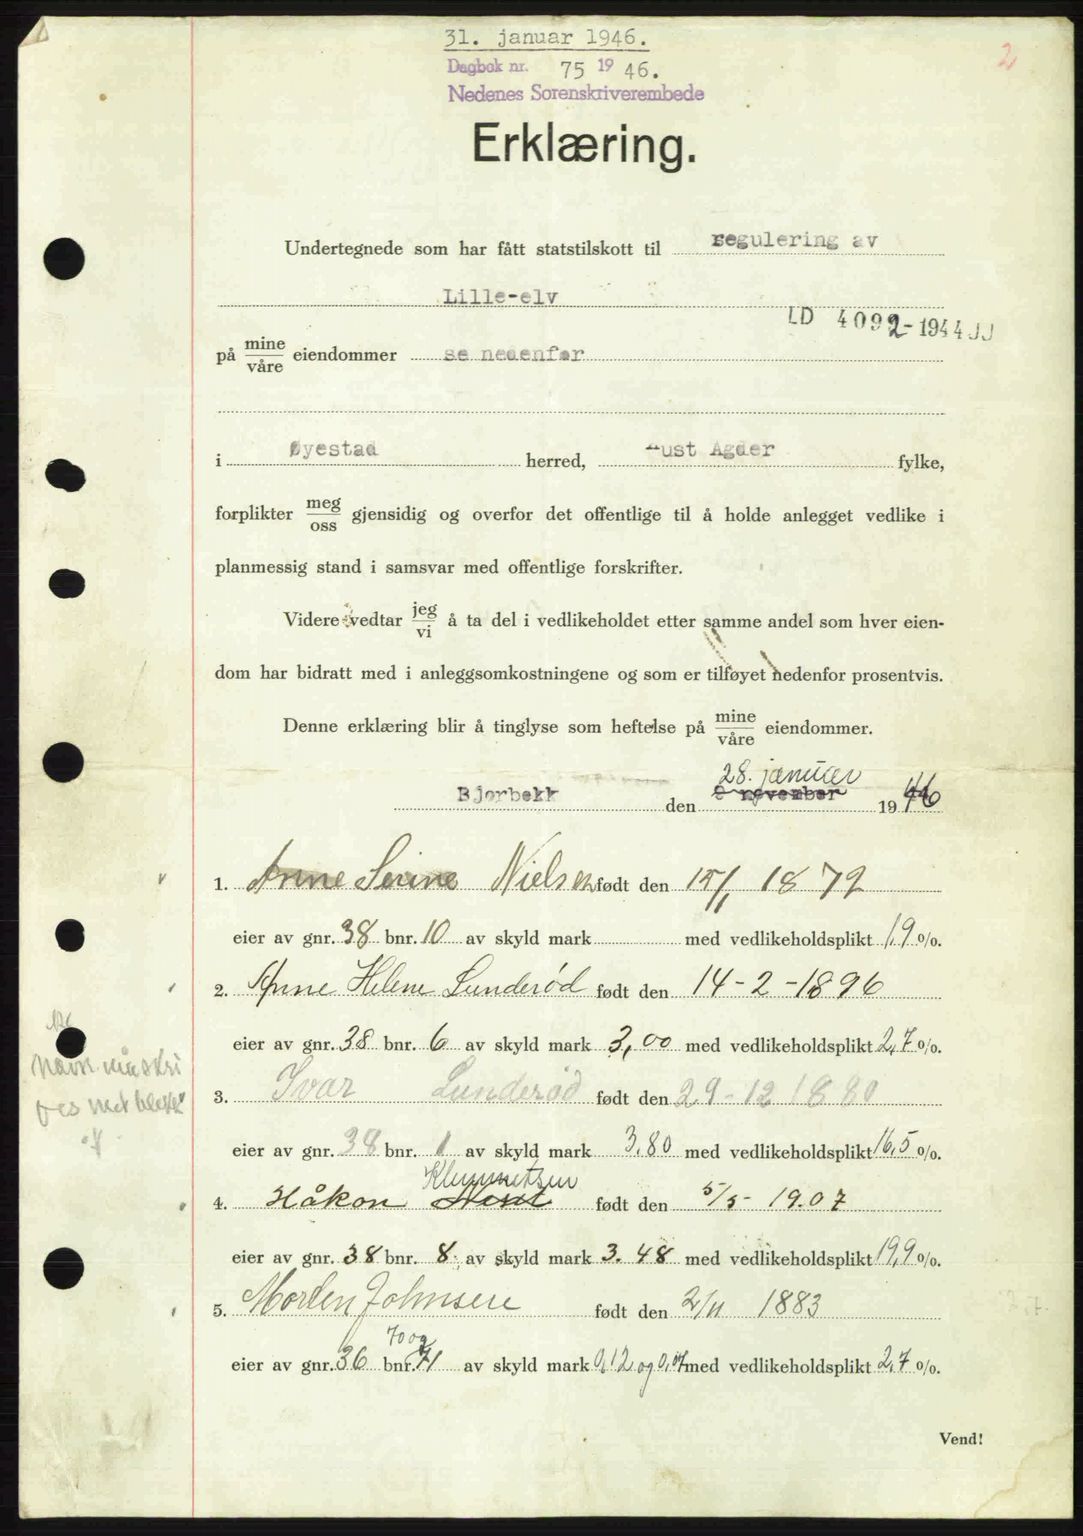 31. januar 1946.
2
Dagbok nr. 75 19 46.
Nedenes Sorenskriverembede
Erklæring.
Undertegnede som har fått statstilskott til regulering av
Lille-elv
LD 4092-1944 JJ
på mine/våre eiendommer se nedenfor
i Øyestad herred, Aust Agder fylke,
forplikter meg/oss gjensidig og overfor det offentlige til å holde anlegget vedlike i
planmessig stand i samsvar med offentlige forskrifter.
Videre vedtar jeg/vi å ta del i vedlikeholdet etter samme andel som hver eien-
dom har bidratt med i anleggsomkostningene og som er tilføyet nedenfor prosentvis.
Denne erklæring blir å tinglyse som heftelse på mine/våre eiendommer.
28. januar
Bjorbekk den 8 november 1946
1. Anne Serine Nielsen født den 15/1 1872
eier av gnr. 38 bnr. 10 av skyld mark med vedlikeholdsplikt 1,9 %.
2. Anne Helene Lunderød født den 14-2-1896
eier av gnr. 38 bnr. 6 av skyld mark 3,00 med vedlikeholdsplikt 2,7 %.
3. Ivar Lunderød født den 29-12 1880
eier av gnr. 38 bnr. 1 av skyld mark 3.80 med vedlikeholdsplikt 16,5 %.
Klemmetsen
4. Håkon født den 5/5-19.07
eier av gnr. 38 bnr. 8 av skyld mark 3.48 med vedlikeholdsplikt 19,9 %.
5. Morten Johnsen født den 2/11 1883
70 og
eier av gnr. 36 bnr. 71 av skyld mark 0,12 og 0,07 med vedlikeholdsplikt 2,7 %.
Vend!